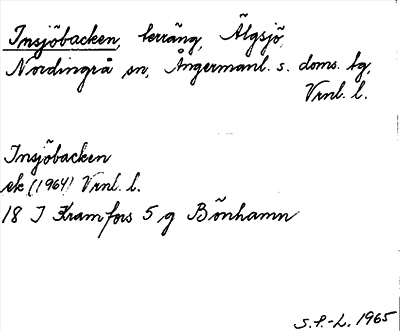 Insjöbacken, terräng, Älgsjö,
Nordingrå sn, Ångermanl. s. doms. tg,
Vrnl. l.
Insjöbacken
ek (1964) Vrnl. l.
18 I Kramfors 5 g Bönhamn
S.P.-L. 1965